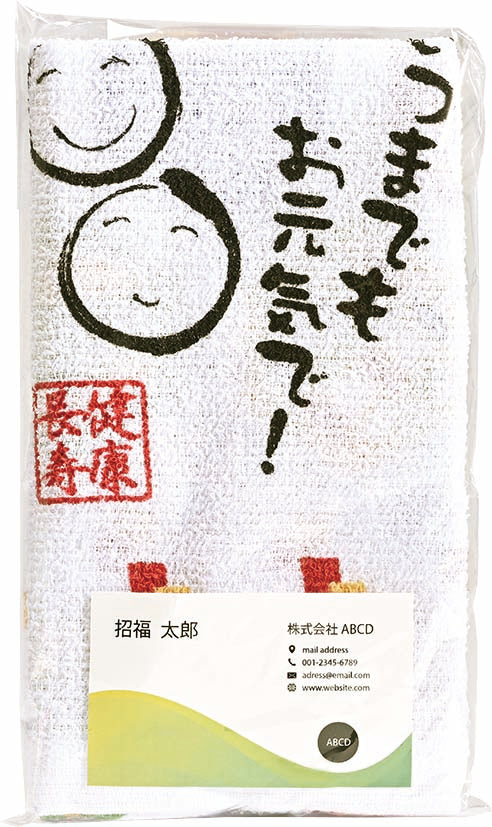 つまでも
お元気で!
健康
長寿
招福 太郎
株式会社 ABCD
mail address
001-2345-6789
adress@email.com
www.website.com
ABCD